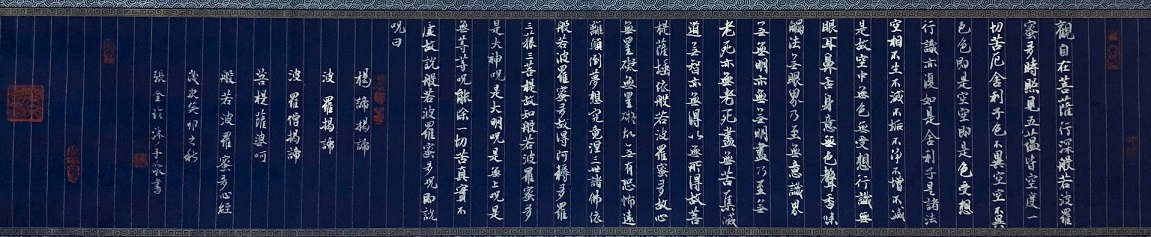 觀自在菩薩行深般若波羅
蜜多時照見五蘊皆空度一
切苦厄舍利子色不異空空不異
色色即是空空即是色受想
行識亦復如是舍利子是諸法
空相不生不滅不垢不淨不增不減
是故空中無色無受想行識無
眼耳鼻舌身意無色聲香味
觸法無眼界乃至無意識界
無無明亦無無明盡乃至無
老死亦無老死盡無苦集滅
道無智亦無得以無所得故菩
提薩埵依般若波羅蜜多故心
無罣礙無罣礙故無有恐怖遠
離顛倒夢想究竟涅三世諸佛依
般若波羅蜜多故得阿耨多羅
三藐三菩提故知般若波羅蜜多
是大神呪是大明呪是無上呪是
無等等呪能除一切苦真實不
虛故說般若波羅蜜多呪即說
呪曰
揭諦揭諦
波羅揭諦
波羅僧揭諦
菩提薩婆呵
般若波羅蜜多心經
歲次癸卯之秋
張金沐手敬書